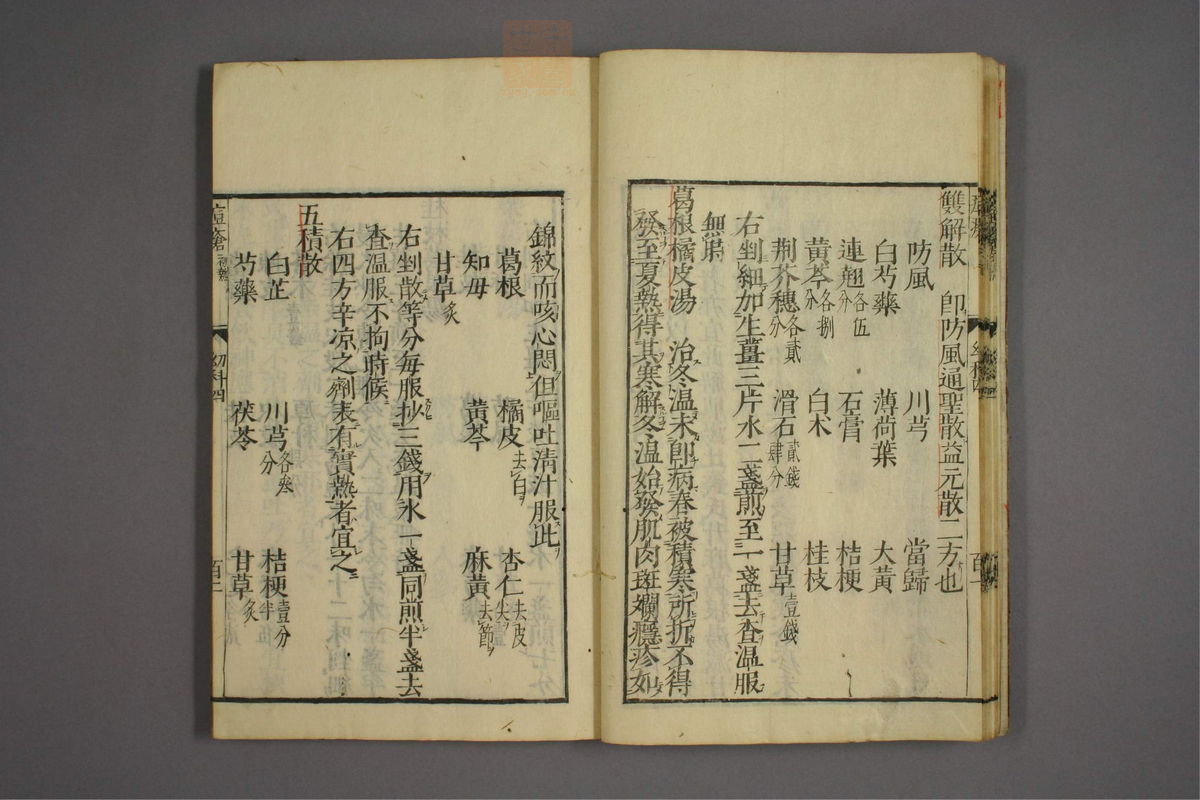 雙解散 卽防風通聖散益元散二方也
防風 川芎 當歸
白芍藥 薄荷葉 大黃
連翹各伍分 石膏 桔梗
黃芩各捌分 白朮 桂枝
荆芥穗各貳分 滑石貳錢肆分 甘草壹錢
右剉細加生薑三片水二盞煎至一盞去查温服
無時
葛根橘皮湯 治冬温未卽病春被積寒所折不得
發至夏熱得其寒解冬温始發肌肉斑爛癮疹如
錦紋而咳心悶但嘔吐清汁服此
葛根 橘皮去白 杏仁去皮尖
知毋 黃芩 麻黃去節
甘草炙
右剉散等分每服抄三錢用水一盞同煎半盞去
查温服不拘時候
右四方辛凉之劑表有實熱者宜之
五積散
白芷 川芎各叁分 桔梗壹分半
芍藥 茯苓 甘草炙
痘瘡
幼科四
百二